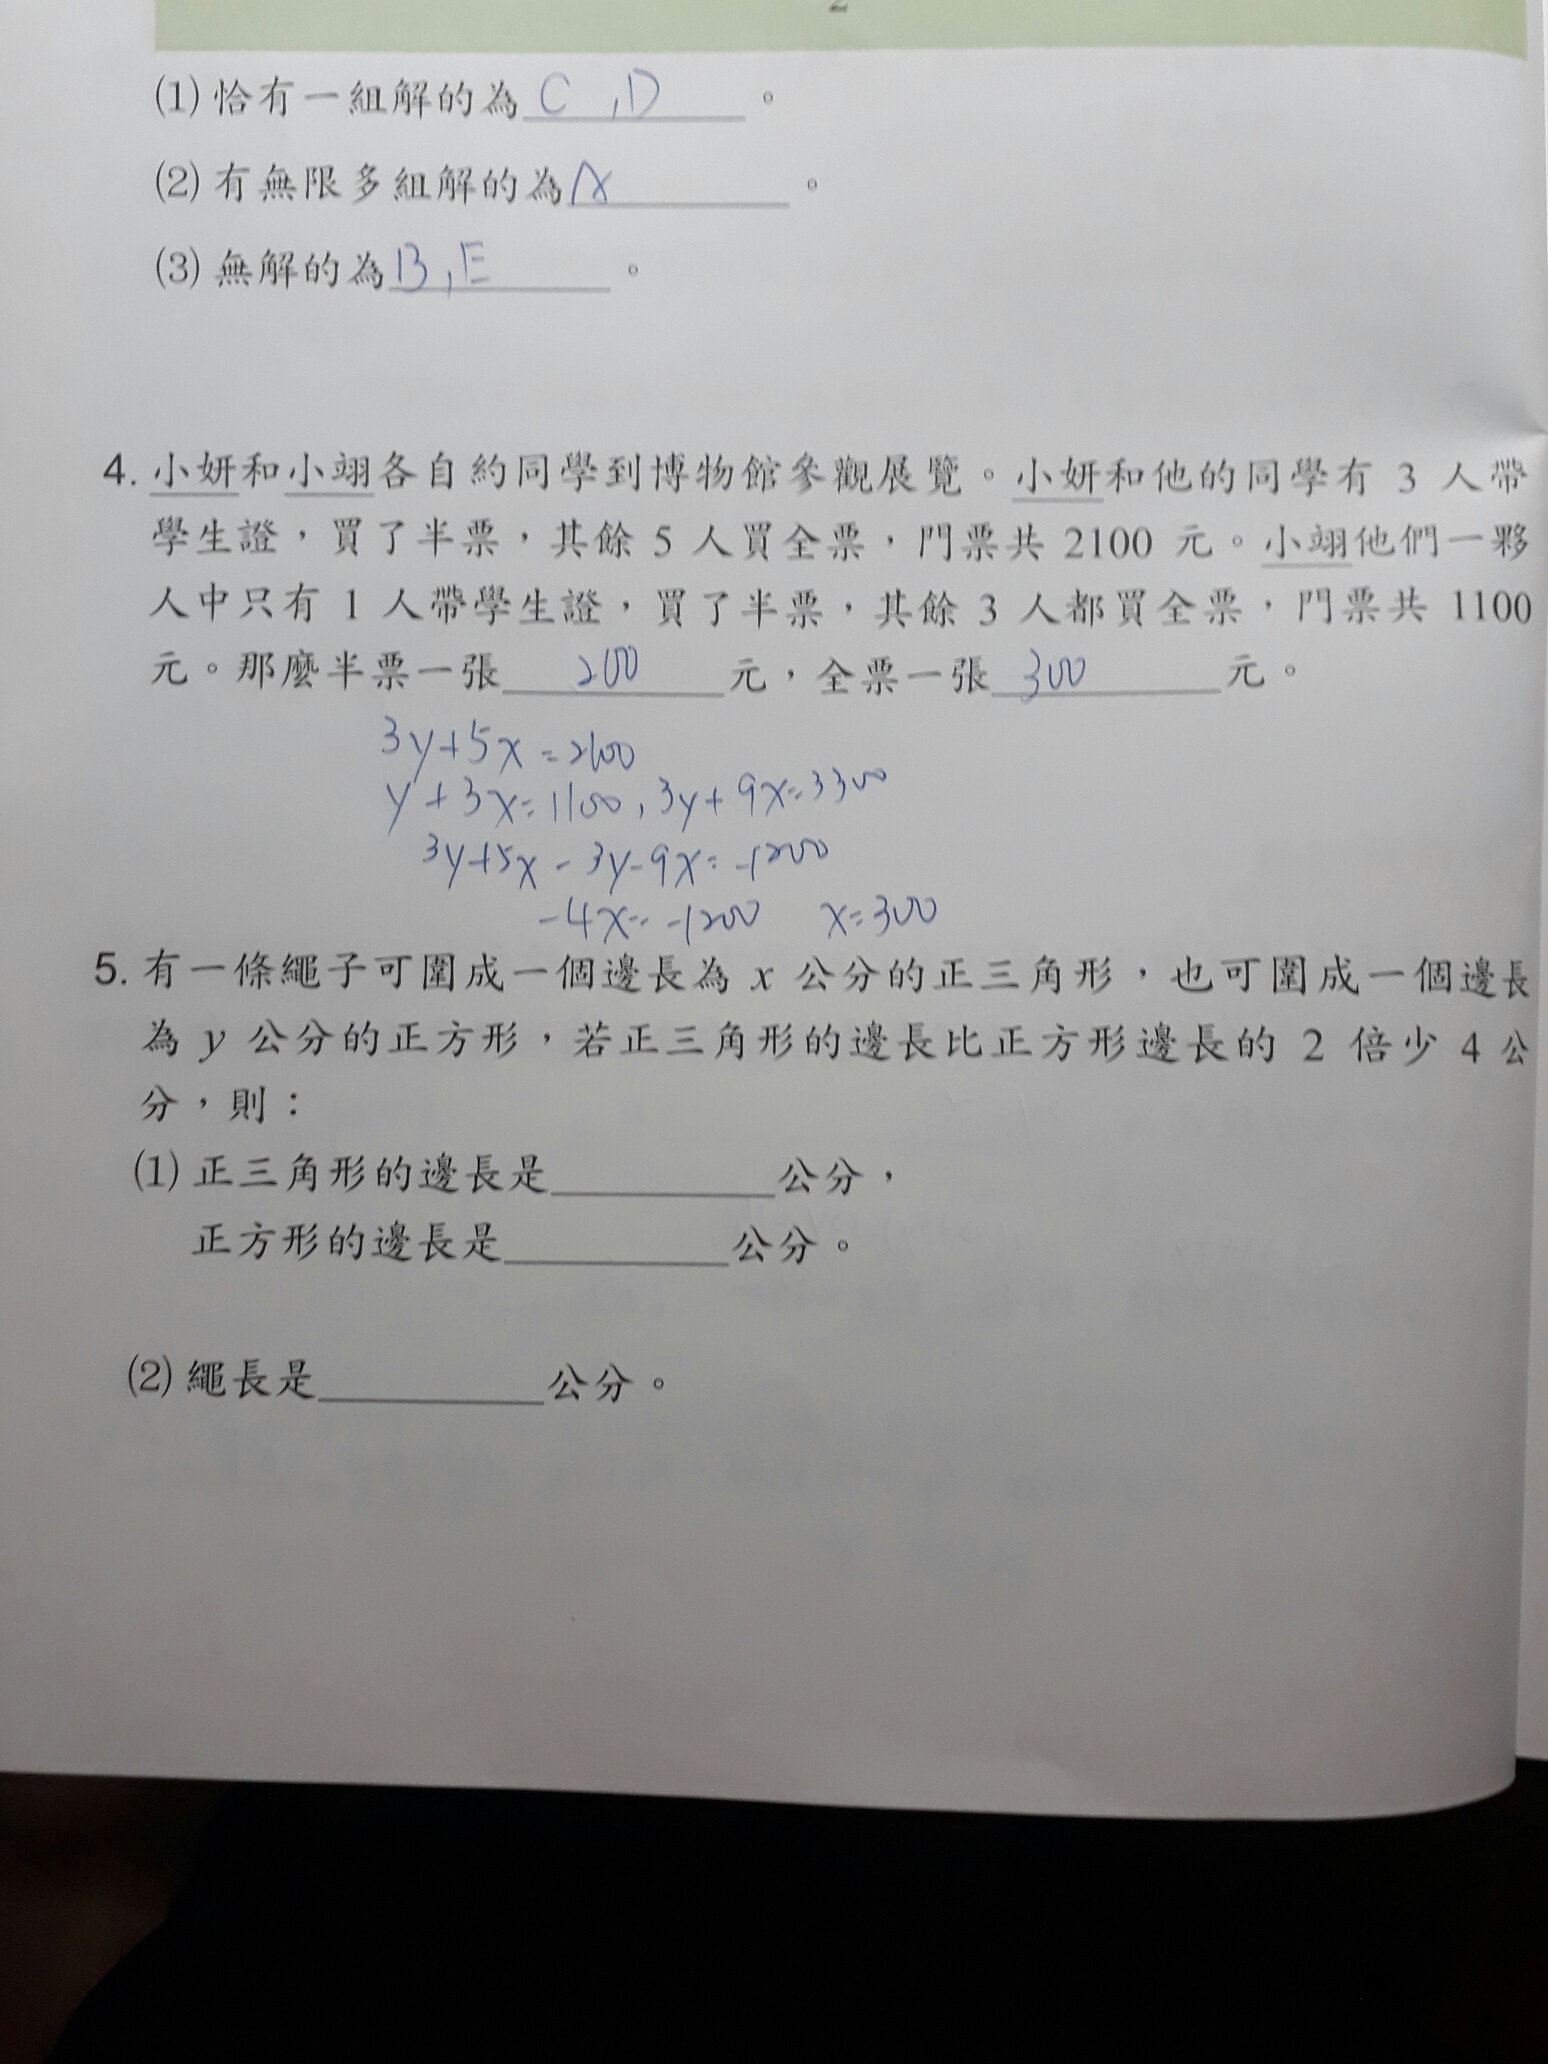 2
(1) 恰有一組解的為 C , D 。
(2) 有無限多組解的為 A 。
(3) 無解的為 B , E 。
4. 小妍和小翊各自約同學到博物館參觀展覽。小妍和他的同學有 3 人帶
學生證，買了半票，其餘 5 人買全票，門票共 2100 元。小翊他們一夥
人中只有 1 人帶學生證，買了半票，其餘 3 人都買全票，門票共 1100
元。那麼半票一張 200 元，全票一張 300 元。
3y+5x=2100
y+3x=1100, 3y+9x=3300
3y+5x-3y-9x=-1200
-4x=-1200 x=300
5. 有一條繩子可圍成一個邊長為 x 公分的正三角形，也可圍成一個邊長
為 y 公分的正方形，若正三角形的邊長比正方形邊長的 2 倍少 4 公
分，則：
(1) 正三角形的邊長是 公分，
正方形的邊長是 公分。
(2) 繩長是 公分。